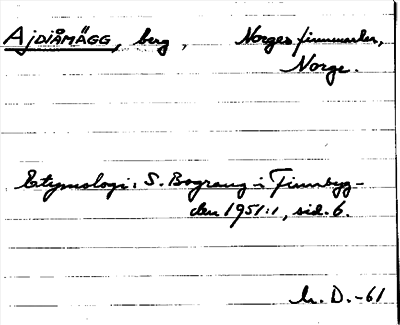 AJDIÅMÄGG, berg, Norges finnmarker,
Norge.
Etymologi: S. Bograng i Finnbyg-
den 1951:1, sid. 6.
D. -61